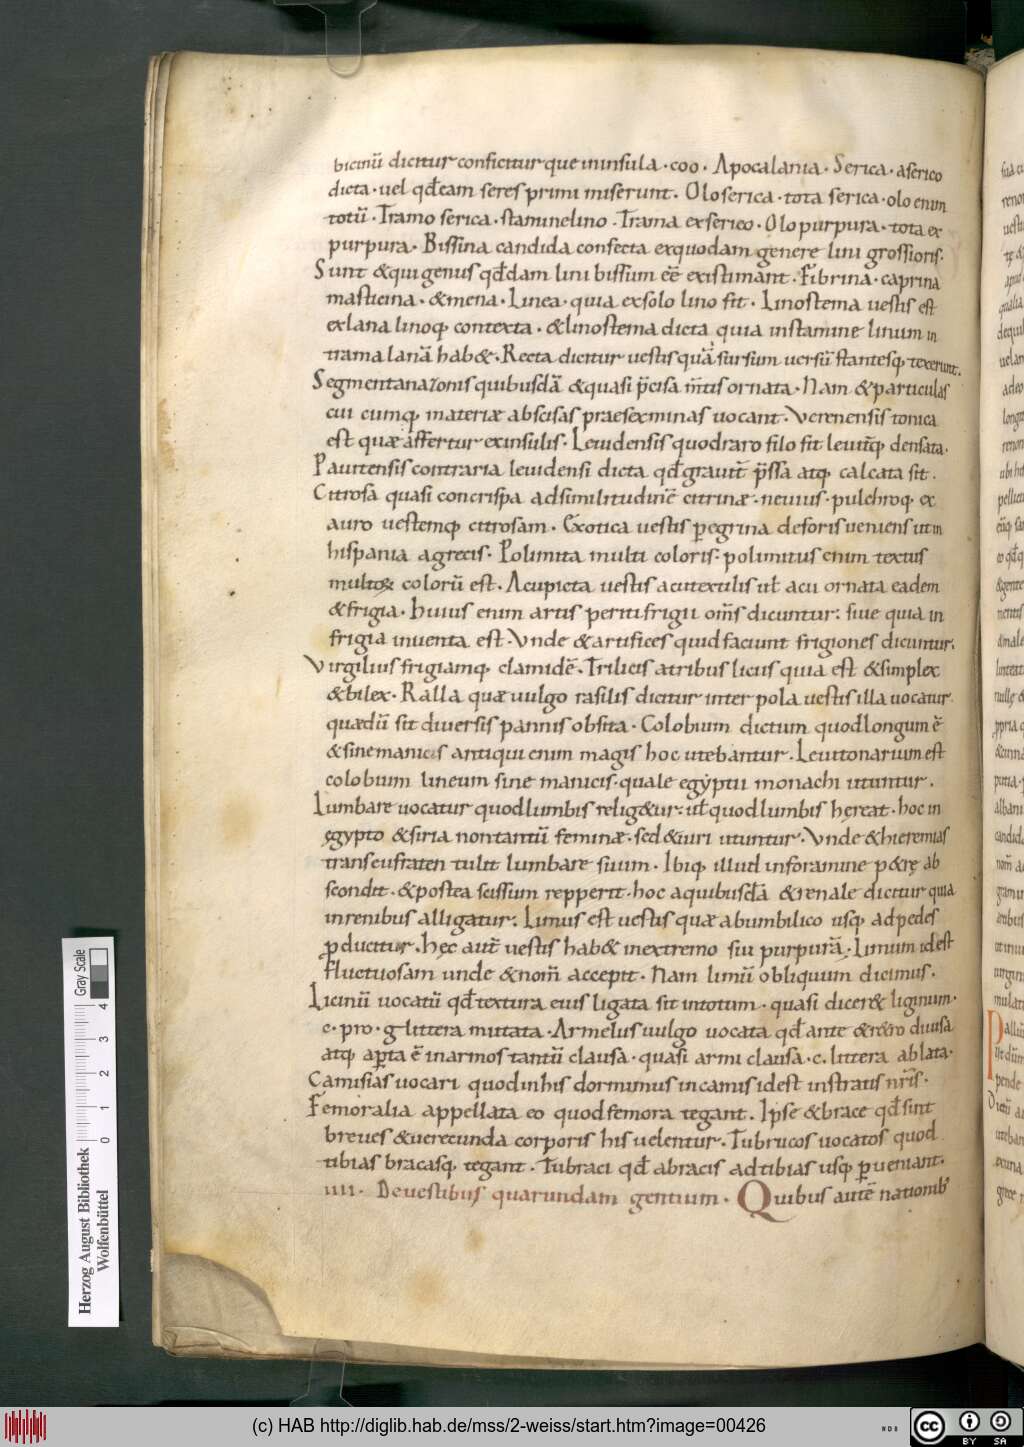 bicinū dicitur conficitur que in insula · coo · Apocalania · Serica · a serico
dicta · uel qđ eam seres primi miserunt · Oloserica · tota serica · olo enim
totū · Tramo serica · stamine lino · Trama ex serico · Olopurpura · tota ex
purpura · Bissina candida confecta ex quodam genere lini grossioris ·
Sunt & qui genus qđdam lini bissum eē existimant · Fibrina · caprina
masticina · & mena · Linea · quia ex solo lino fit · Linostema uestis est
ex lana linoq; contexta · & linostema dicta quia in stamine linum in
trama lanā hab& · Recta dicitur uestis quā sursum uersū stantesq; texerunt ·
Segmentana zonis quibusdā & quasi p̄cisa m̄tis ornata · Nam & particulas
cui cumq; materiæ abscisas praeseminas uocant · Verenensis tonica
est quæ affertur ex insulis · Leuidensis quod raro filo fit leuitq; densata ·
Pauitensis contraria leuidensi dicta qđ grauit̄ p̄ssa atq; calcata sit ·
Citrosa quasi concrispa ad similitudinē citrinæ · neuius · pulchroq; ex
auro uestemq; citrosam · Exotica uestis p̲egrina deforis ueniens ut in
hispania a grecis · Polimita multi coloris · polimitus enim textus
multoꝝ colorū est · Acupicta uestis acu textilis uł acu ornata eadem
& frigia · Huius enim artis periti frigii om̄s dicuntur · siue quia in
frigia inuenta est · Vnde & artifices qui id faciunt frigiones dicuntur ·
Virgilius frigiamq; clamidē · Trilicis a tribus licus quia est & simplex
& bilex · Ralla quæ uulgo rasilis dicitur inter pola uestis illa uocatur
quædū sit diuersis pannis obsita · Colobium dictum quod longum ē
& sine manicis antiqui enim magis hoc utebantur · Leuitonarium est
colobium lineum sine manicis · quale egẏptii monachi utuntur ·
Lumbare uocatur quod lumbis relig&ur · uł quod lumbis hęreat · hoc in
ęgypto & siria non tantū feminæ · sed & uiri utuntur · Vnde & hieremias
trans eufraten tulit lumbare suum · Ibiq; illud in foramine p&rę ab
scondit · & postea scissum repperit · hoc a quibusdā & renale dicitur quia
in renibus alligatur · Limus est uestis quæ ab umbilico usq; ad pedes
ꝓducitur · hęc aut̄ uestis hab& in extremo sui purpurā · limum id est
fluctuosam unde & nom̄ accepit · Nam limū obliquum dicimus ·
Licinū uocatū qđ textura eius ligata sit in totum · quasi dicer& liginum ·
c · pro · g littera mutata · Armelus uulgo uocata qđ ante & retro diuisa
atq; ap̲ta ē in armos tantū clausa · quasi armi clausa · c · littera ablata ·
Camisias uocari quod in his dormimus in camis id est in stratis nr̄is ·
Femoralia appellata eo quod femora tegant · Ipse & brace qđ sint
breues & uerecunda corporis his uelentur · Tubrucos uocatos quod
tibias bracasq; tegant · Tubraci qđ a bracis ad tibias usq; p̲ueniant ·
IIII · De uestibus quarundam gentium · Quibus autē nationib;
Herzog August Bibliothek
Wolfenbüttel
Gray Scale
0 1 2 3 4
(c) HAB http://diglib.hab.de/mss/2-weiss/start.htm?image=00426
cc BY SA